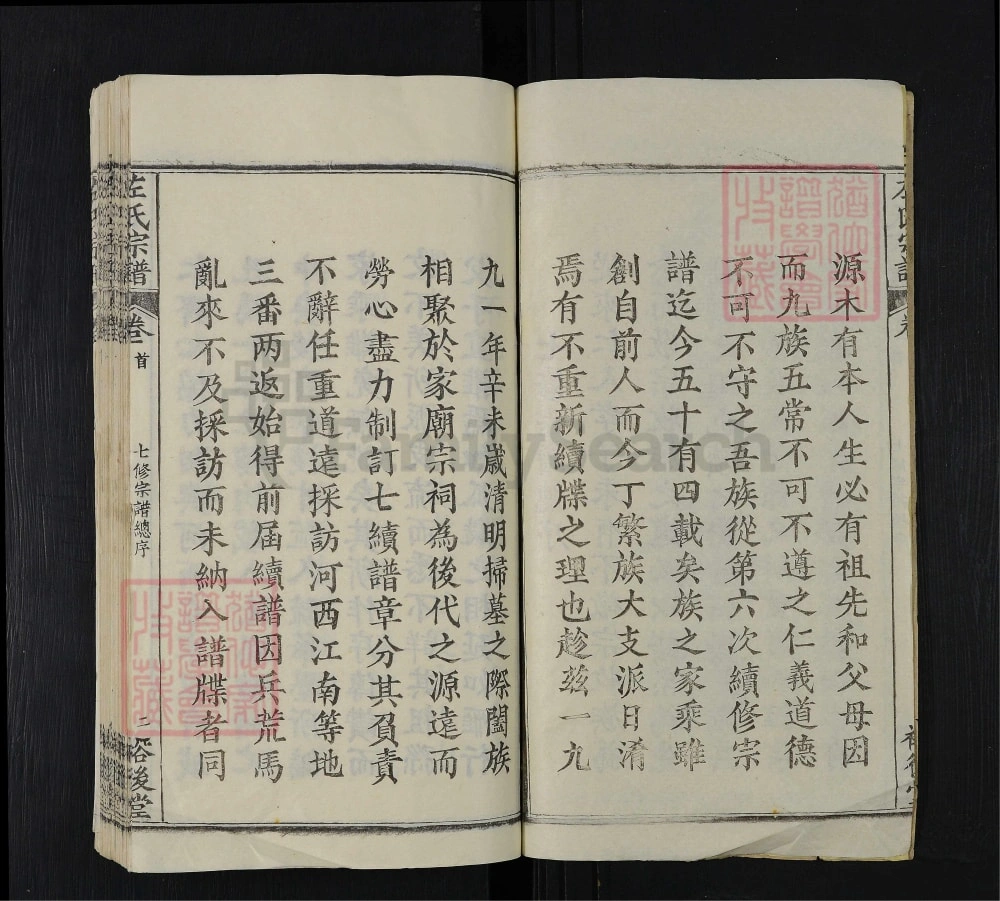 源木有本人生必有祖先和父母因
而九族五常不可不遵之仁義道德
不可不守之吾族從第六次續修宗
譜迄今五十有四載矣族之家乘雖
創自前人而今丁繁族大支派日淆
焉有不重新續牒之理也趁茲一九
九一年辛未歲清明掃墓之際闔族
相聚於家廟宗祠為後代之源遠而
勞心盡力制訂七續譜章分其負責
不辭任重道遠採訪河西江南等地
三番两返始得前屆續譜因兵荒馬
亂來不及採訪而未納入譜牒者同
左氏宗譜
卷首
七修宗譜總序
二
裕後堂
FamilySearch